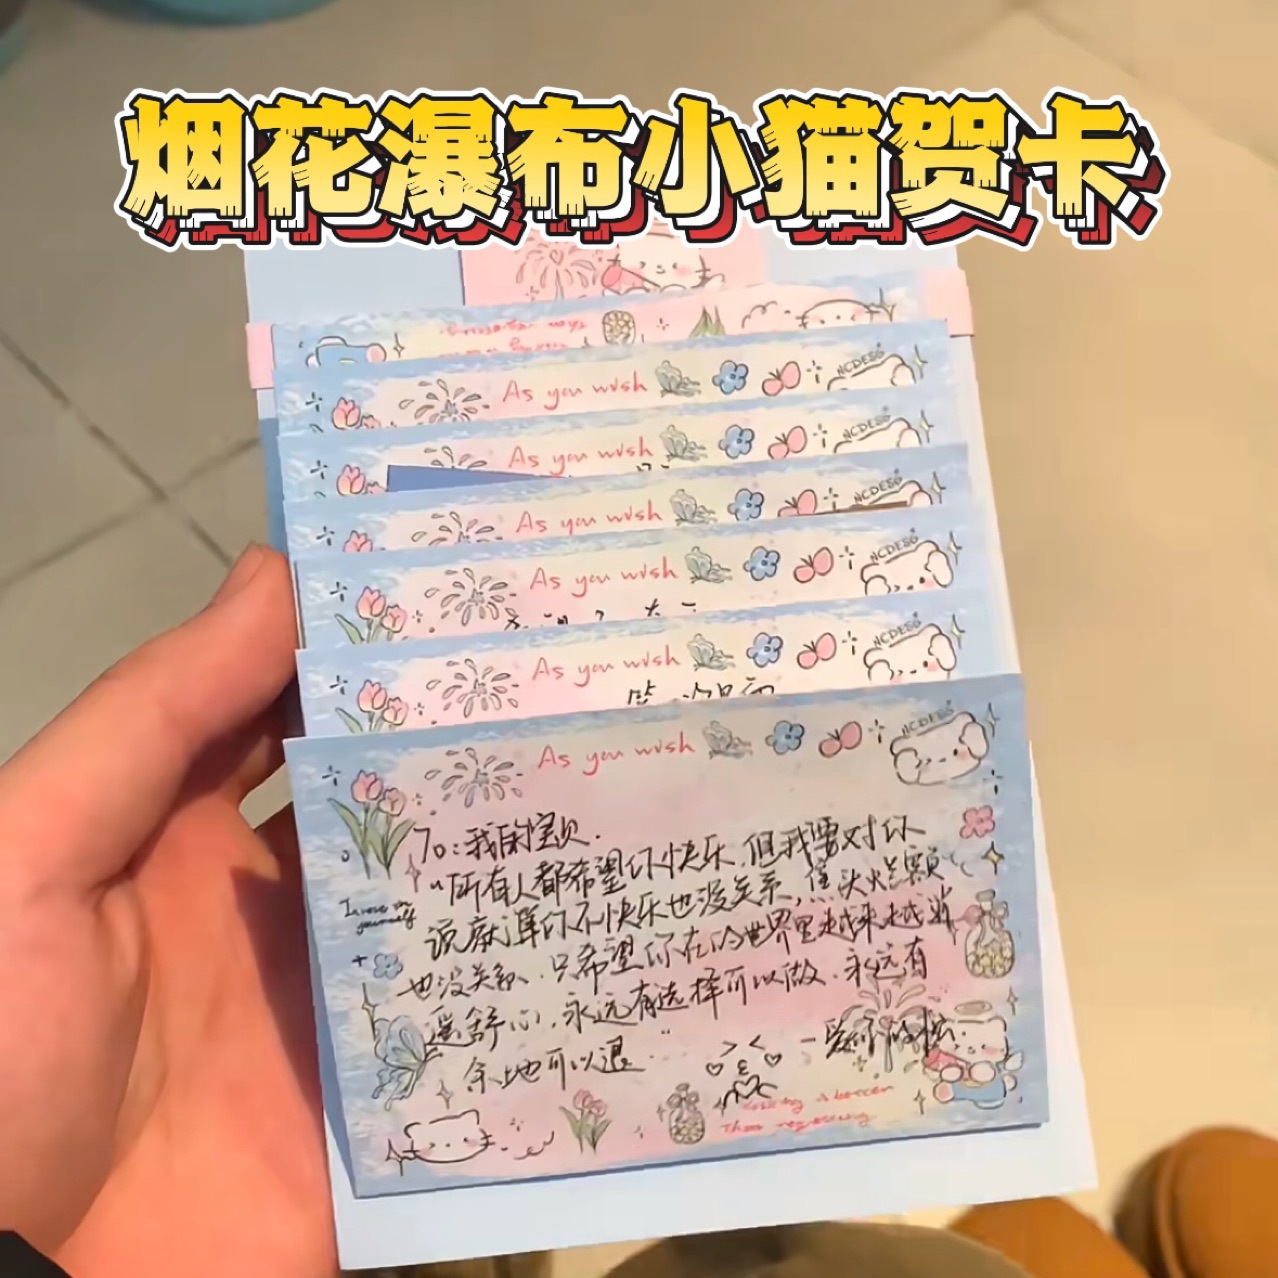 烟花瀑布小猫贺卡
As you wish
As you wish
As you wish
As you wish
As you wish
As you wish
NCDESG
NCDESG
NCDESG
NCDESG
NCDESG
NCDESG
To:我的宝贝.
"所有人都希望你快乐,但我要对你
说就算你不快乐也没关系,焦头烂额
也没关系、只希望你在的世界里越来越
舒心,永远有选择可以做、永远有
余地可以退."
—爱你的
than